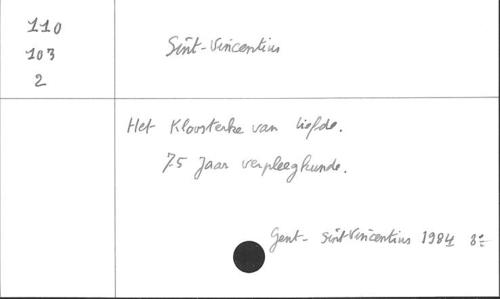 110
103
2
Sint-Vincentius
Het Kloosterke van liefde.
75 Jaar verpleegkunde.
Gent - Sint Vincentius 1984 8°